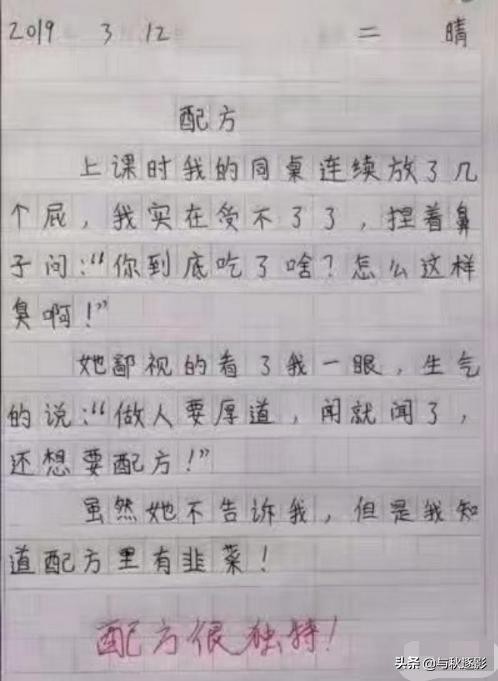 2019 3 12 二 晴
配方
上课时我的同桌连续放了几
个屁，我实在受不了了，捏着鼻
子问：“你到底吃了啥？怎么这样
臭啊！”
她鄙视的看了我一眼，生气
的说：“做人要厚道，闻就闻了，
还想要配方！”
虽然她不告诉我，但是我知
道配方里有韭菜！
配方很独特！
头条 @与秋逐影